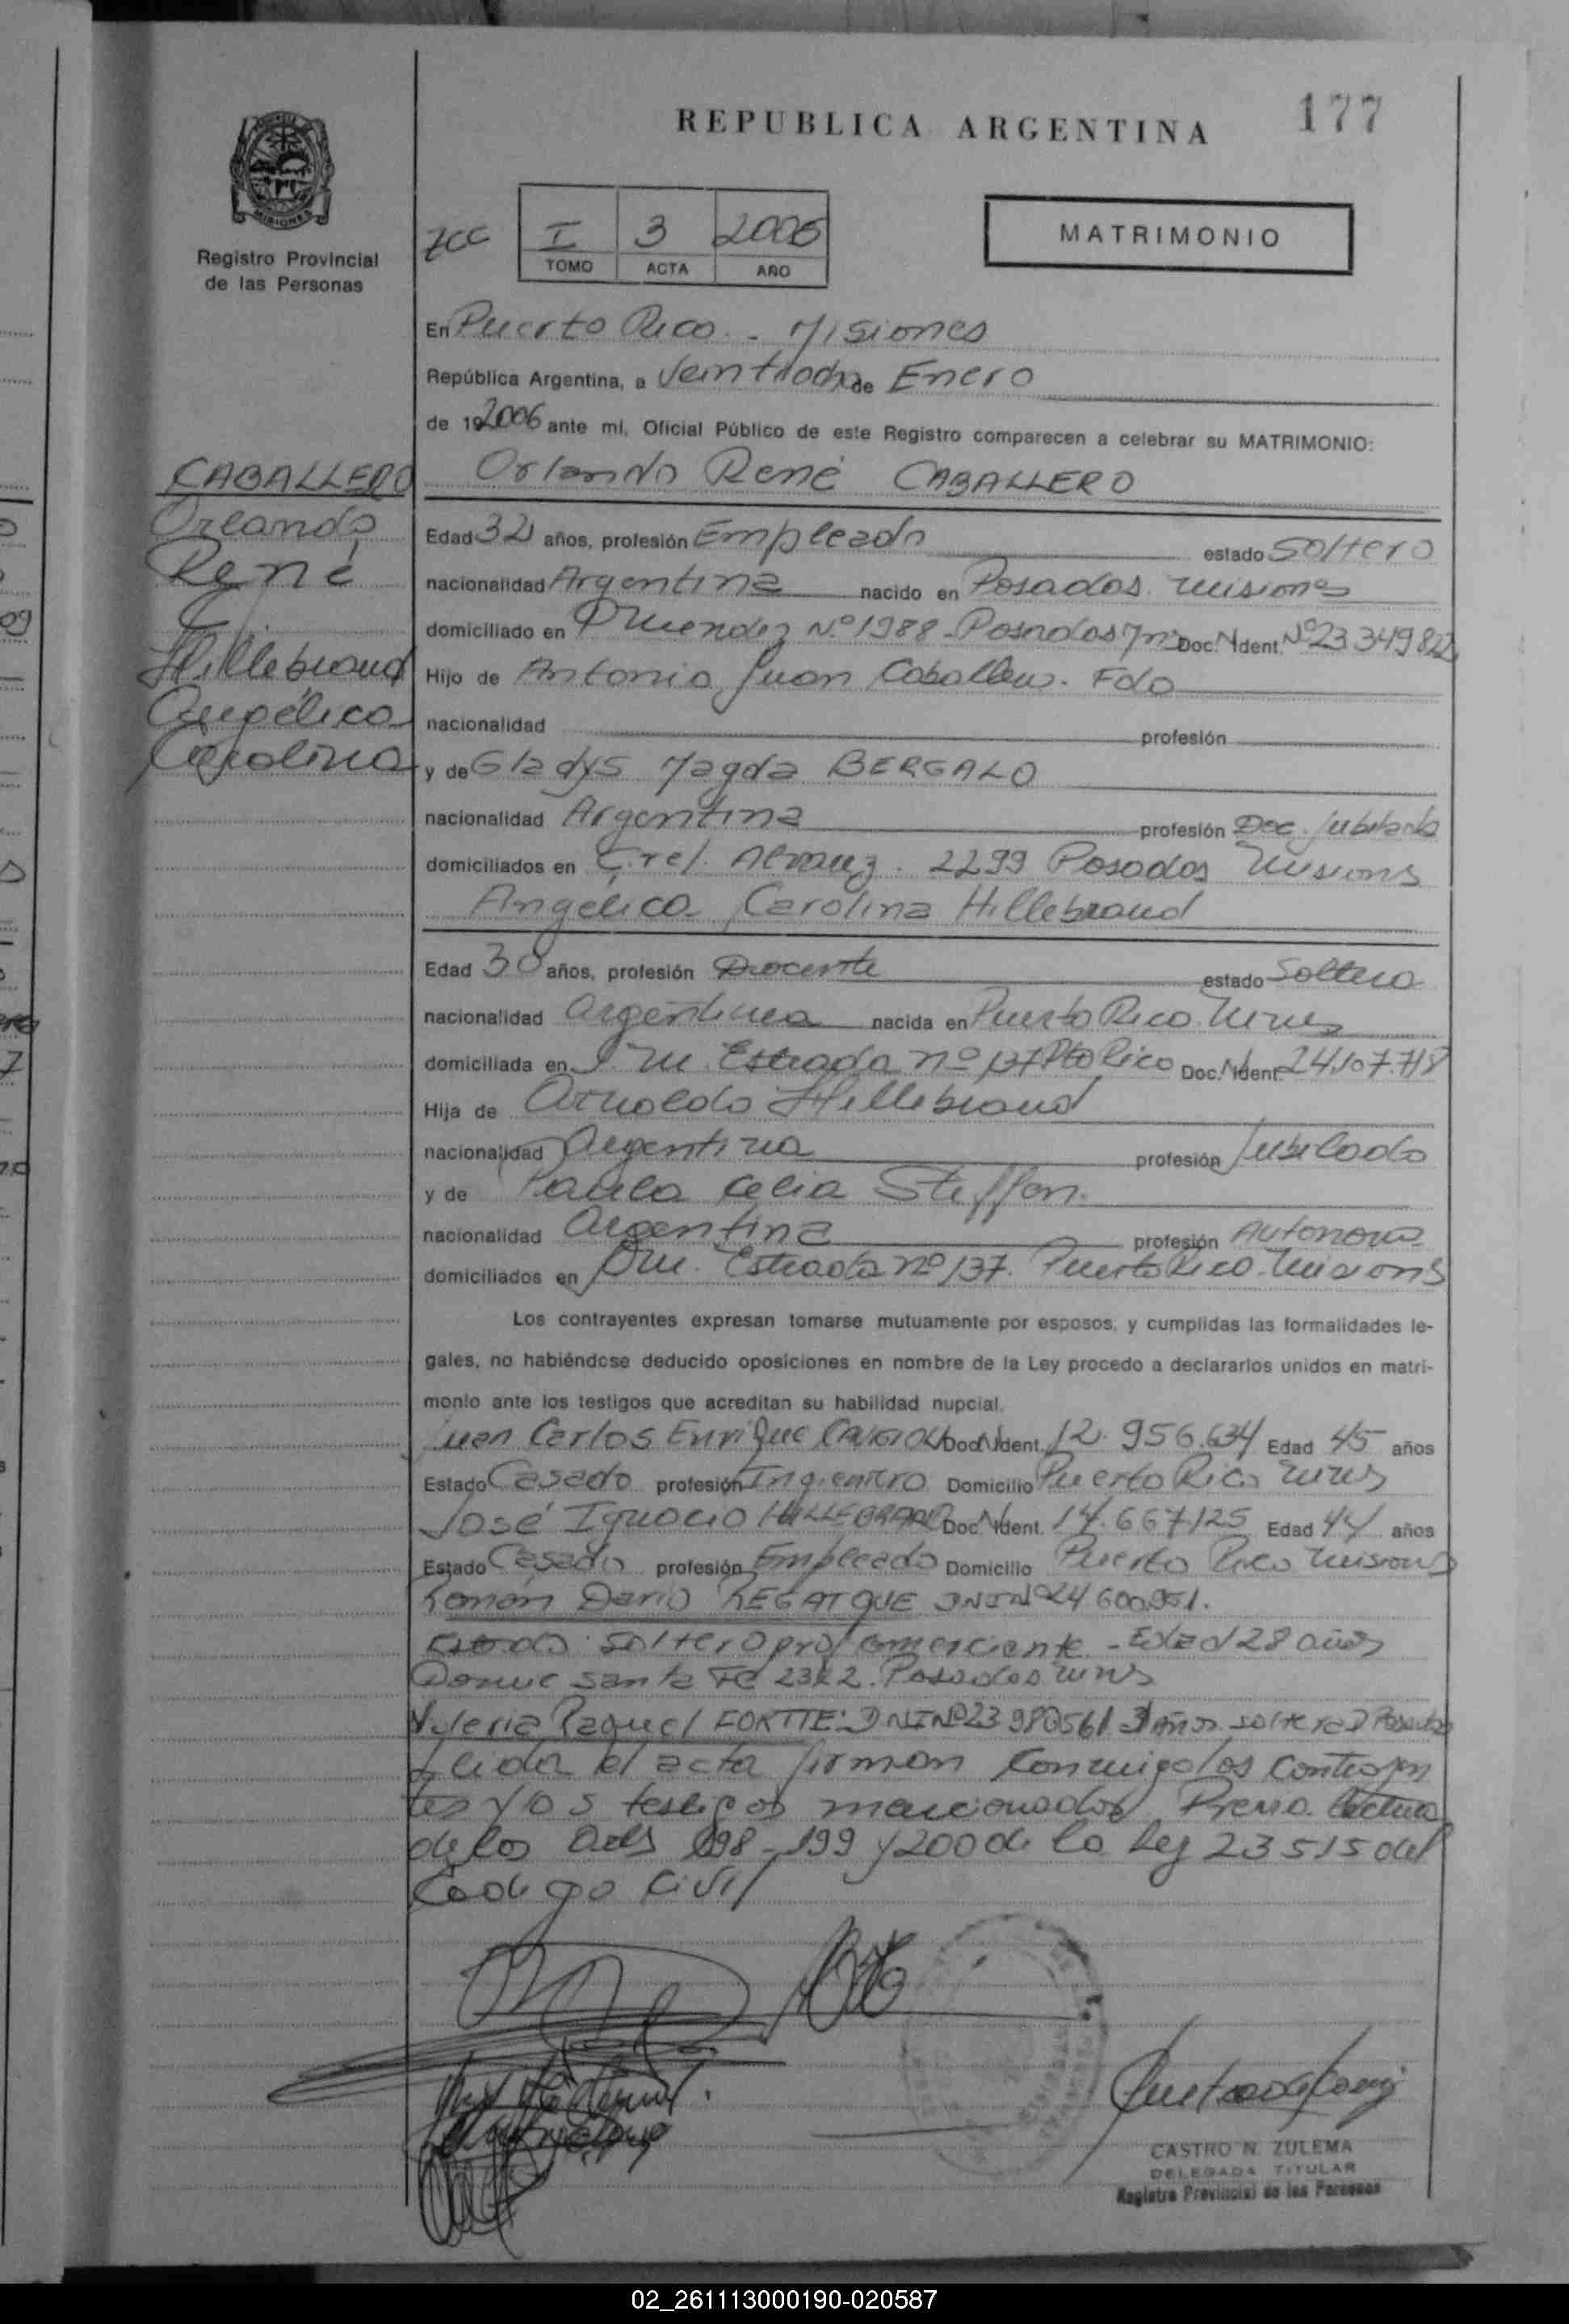 REPUBLICA ARGENTINA
177
MISIONES
Registro Provincial
de las Personas
I 3 2006
TOMO ACTA AÑO
MATRIMONIO
En Puerto Rico - Misiones
República Argentina, a Veintiocho de Enero
de 192006 ante mi, Oficial Público de este Registro comparecen a celebrar su MATRIMONIO:
Orlando René CABALLERO
CABALLERO
Orlando
René
y
Hillebrand
Angélica
Carolina
Edad 32 años, profesión Empleado estado Soltero
nacionalidad Argentina nacido en Posadas Misiones
domiciliado en Nº 1988 - Posadas Mnes Doc. N Ident. Nº 23 349 822
Hijo de Antonio Juan Caballero. Fdo
nacionalidad profesión
y de Gladys Magda BERGALO
nacionalidad Argentina profesión Doc. Jubilada
domiciliados en Crel. Alvarez. 2299 Posadas Misiones
Angélica Carolina Hillebrand
Edad 30 años, profesión Docente estado Soltera
nacionalidad Argentina nacida en Puerto Rico Mnes
domiciliada en J. M. Estrada nº 137 Pto Rico Doc. N Ident. 24.107.718
Hija de Arnoldo Hillebrand
nacionalidad Argentina profesión Jubilado
y de Paula Celia Steffen.
nacionalidad Argentina profesión Autonoma
domiciliados en J M. Estrada nº 137. Puerto Rico. Misiones
Los contrayentes expresan tomarse mutuamente por esposos, y cumplidas las formalidades le-
gales, no habiéndose deducido oposiciones en nombre de la Ley procedo a declararlos unidos en matri-
monio ante los testigos que acreditan su habilidad nupcial.
Juan Carlos Enrique Doc. N Ident. 12.956.634 Edad 45 años
Estado Casado profesión Ingeniero Domicilio Puerto Rico Mnes
José Ignacio HILLEBRAND Doc. N Ident. 14.667125 Edad 44 años
Estado Casado profesión Empleado Domicilio Puerto Rico Misiones
Román Dario REGATQUE DNI Nº 24 600.951.
Estado: soltero prof comerciante - Edad 28 años
Domic Santa Fe 2322. Posadas Mnes
Valeria Raquel FORTTE: DNI Nº 23 980561 31 Años soltera D Posadas
Leida el acta firman conmigo los contrayen
tes y los testigos mencionados Previa lectura
de los arts 198-199 y 200 de la Ley 23515 del
Codigo Civil
CASTRO N. ZULEMA
DELEGADA TITULAR
Registro Provincial de las Personas
02_261113000190-020587